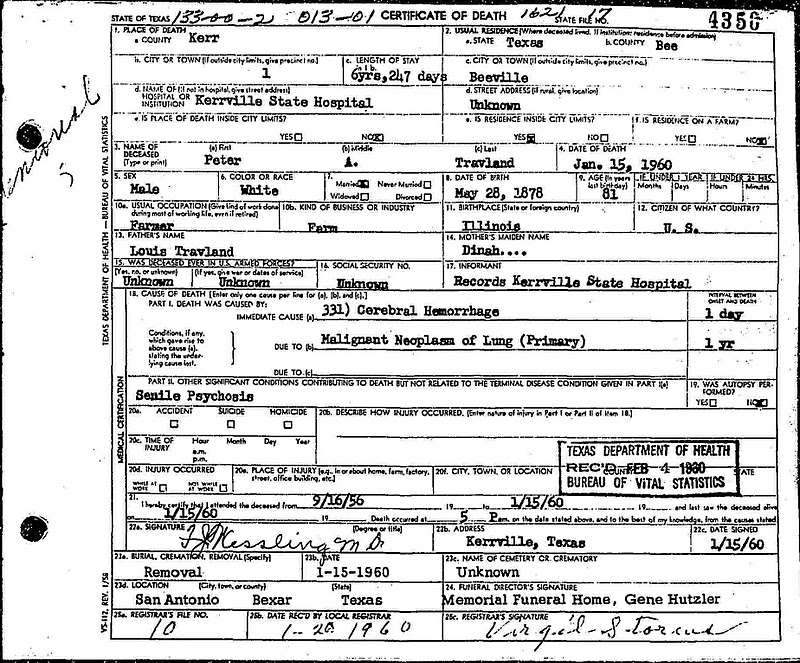 STATE OF TEXAS 133-00-2 013-01 CERTIFICATE OF DEATH 1621 STATE FILE NO. 17 4356
1. PLACE OF DEATH
a. COUNTY Kerr
2. USUAL RESIDENCE (Where deceased lived. If institution: residence before admission)
a. STATE Texas b. COUNTY Bee
b. CITY OR TOWN (If outside city limits, give precinct no.)
1
c. LENGTH OF STAY
in 1 b.
6yrs,247 days
c. CITY OR TOWN (If outside city limits, give precinct no.)
Beeville
d. NAME OF (If not in hospital, give street address)
HOSPITAL OR
INSTITUTION Kerrville State Hospital
d. STREET ADDRESS (If rural, give location)
Unknown
e. IS PLACE OF DEATH INSIDE CITY LIMITS?
YES NO
e. IS RESIDENCE INSIDE CITY LIMITS?
YES NO
f. IS RESIDENCE ON A FARM?
YES NO
3. NAME OF DECEASED
(Type or print)
(a) First
Peter
(b) Middle
A.
(c) Last
Travland
4. DATE OF DEATH
Jan. 15, 1960
5. SEX
Male
6. COLOR OR RACE
White
7.
Married Never Married
Widowed Divorced
8. DATE OF BIRTH
May 28, 1878
9. AGE (In years last birthday)
81
IF UNDER 1 YEAR
Months Days
IF UNDER 24 HRS.
Hours Minutes
10a. USUAL OCCUPATION (Give kind of work done during most of working life, even if retired)
Farmer
10b. KIND OF BUSINESS OR INDUSTRY
Farm
11. BIRTHPLACE (State or foreign country)
Illinois
12. CITIZEN OF WHAT COUNTRY?
U. S.
13. FATHER'S NAME
Louis Travland
14. MOTHER'S MAIDEN NAME
Dinah....
15. WAS DECEASED EVER IN U.S. ARMED FORCES?
(Yes, no, or unknown)
Unknown
(If yes, give war or dates of service)
Unknown
16. SOCIAL SECURITY NO.
Unknown
17. INFORMANT
Records Kerrville State Hospital
18. CAUSE OF DEATH [Enter only one cause per line for (a), (b), and (c).]
PART I. DEATH WAS CAUSED BY:
IMMEDIATE CAUSE (a) 331) Cerebral Hemorrhage
INTERVAL BETWEEN ONSET AND DEATH
1 day
Conditions, if any, which gave rise to above cause (a), stating the underlying cause last.
DUE TO (b) Malignant Neoplasm of Lung (Primary)
1 yr
DUE TO (c)
PART II. OTHER SIGNIFICANT CONDITIONS CONTRIBUTING TO DEATH BUT NOT RELATED TO THE TERMINAL DISEASE CONDITION GIVEN IN PART I(a)
Senile Psychosis
19. WAS AUTOPSY PERFORMED?
YES NO
20a.
ACCIDENT SUICIDE HOMICIDE
20b. DESCRIBE HOW INJURY OCCURRED. (Enter nature of injury in Part I or Part II of item 18.)
20c. TIME OF INJURY
Hour Month Day Year
a.m.
p.m.
20d. INJURY OCCURRED
WHILE AT WORK NOT WHILE AT WORK
20e. PLACE OF INJURY (e.g., in or about home, farm, factory, street, office building, etc.)
20f. CITY, TOWN, OR LOCATION COUNTY STATE
TEXAS DEPARTMENT OF HEALTH
REC'D FEB 4 - 1960
BUREAU OF VITAL STATISTICS
21.
I hereby certify that I attended the deceased from 9/16/56 19 to 1/15/60 19 and last saw the deceased alive
on 1/15/60 19 Death occurred at 5 P.m. on the date stated above, and to the best of my knowledge, from the causes stated
22a. SIGNATURE (Degree or title)
22b. ADDRESS
Kerrville, Texas
22c. DATE SIGNED
1/15/60
23a. BURIAL, CREMATION, REMOVAL (Specify)
Removal
23b. DATE
1-15-1960
23c. NAME OF CEMETERY OR CREMATORY
Unknown
23d. LOCATION (City, town, or county)
San Antonio Bexar Texas
24. FUNERAL DIRECTOR'S SIGNATURE
Memorial Funeral Home, Gene Hutzler
25a. REGISTRAR'S FILE NO.
10
25b. DATE REC'D BY LOCAL REGISTRAR
1-20 1960
25c. REGISTRAR'S SIGNATURE
TEXAS DEPARTMENT OF HEALTH — BUREAU OF VITAL STATISTICS
MEDICAL CERTIFICATION
VS-112, REV. 1/58